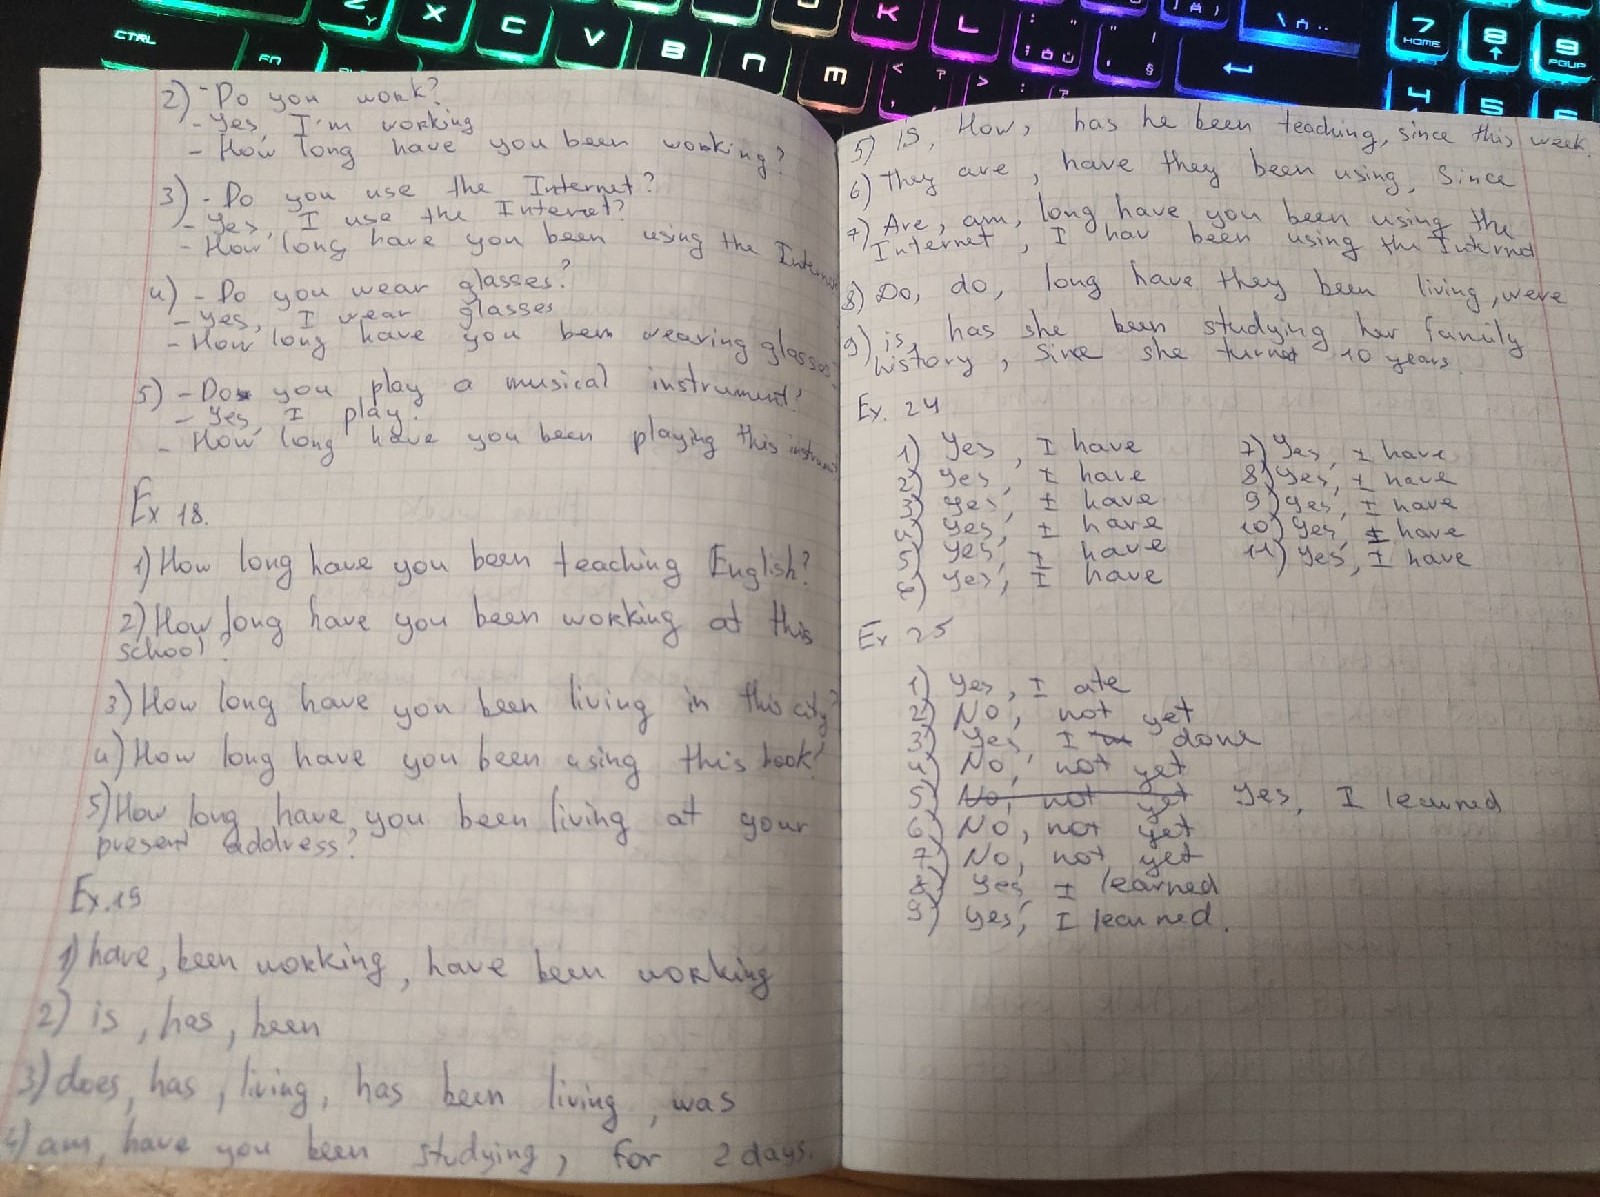 CTRL
FN
Z
Y
X
C
V
B
N
M
K
L
7
HOME
8
9
PGUP
4
5
6
2) - Do you work?
- Yes, I'm working
- How long have you been working?
3) - Do you use the Internet?
- Yes, I use the Internet?
- How long have you been using the Internet
4) - Do you wear glasses?
- Yes, I wear glasses
- How long have you been wearing glasses?
5) - Do you play a musical instrument?
- Yes, I play.
- How long have you been playing this instrum
Ex 18.
1) How long have you been teaching English?
2) How long have you been working at this
school?
3) How long have you been living in this city?
4) How long have you been using this book?
5) How long have you been living at your
present address?
Ex. 19
1) have, been working, have been working
2) is, has, been
3) does, has, living, has been living, was
4) am, have you been studying, for 2 days.
5) IS, How, has he been teaching, since this week.
6) They are, have they been using, since
7) Are, am, long have you been using the
Internet, I hav been using the Internet
8) Do, do, long have they been living, were
9) is, has she been studying her family
history, since she turned 10 years.
Ex. 24
1) Yes, I have
2) Yes, I have
3) Yes, I have
4) Yes, I have
5) Yes, I have
6) Yes, I have
7) Yes, I have
8) Yes, I have
9) Yes, I have
10) Yes, I have
11) Yes, I have
Ex 25
1) Yes, I ate
2) No, not yet
3) Yes, I done
4) No, not yet
5) No, not yet Yes, I learned
6) No, not yet
7) No, not yet
8) Yes I learned
9) Yes, I learned.